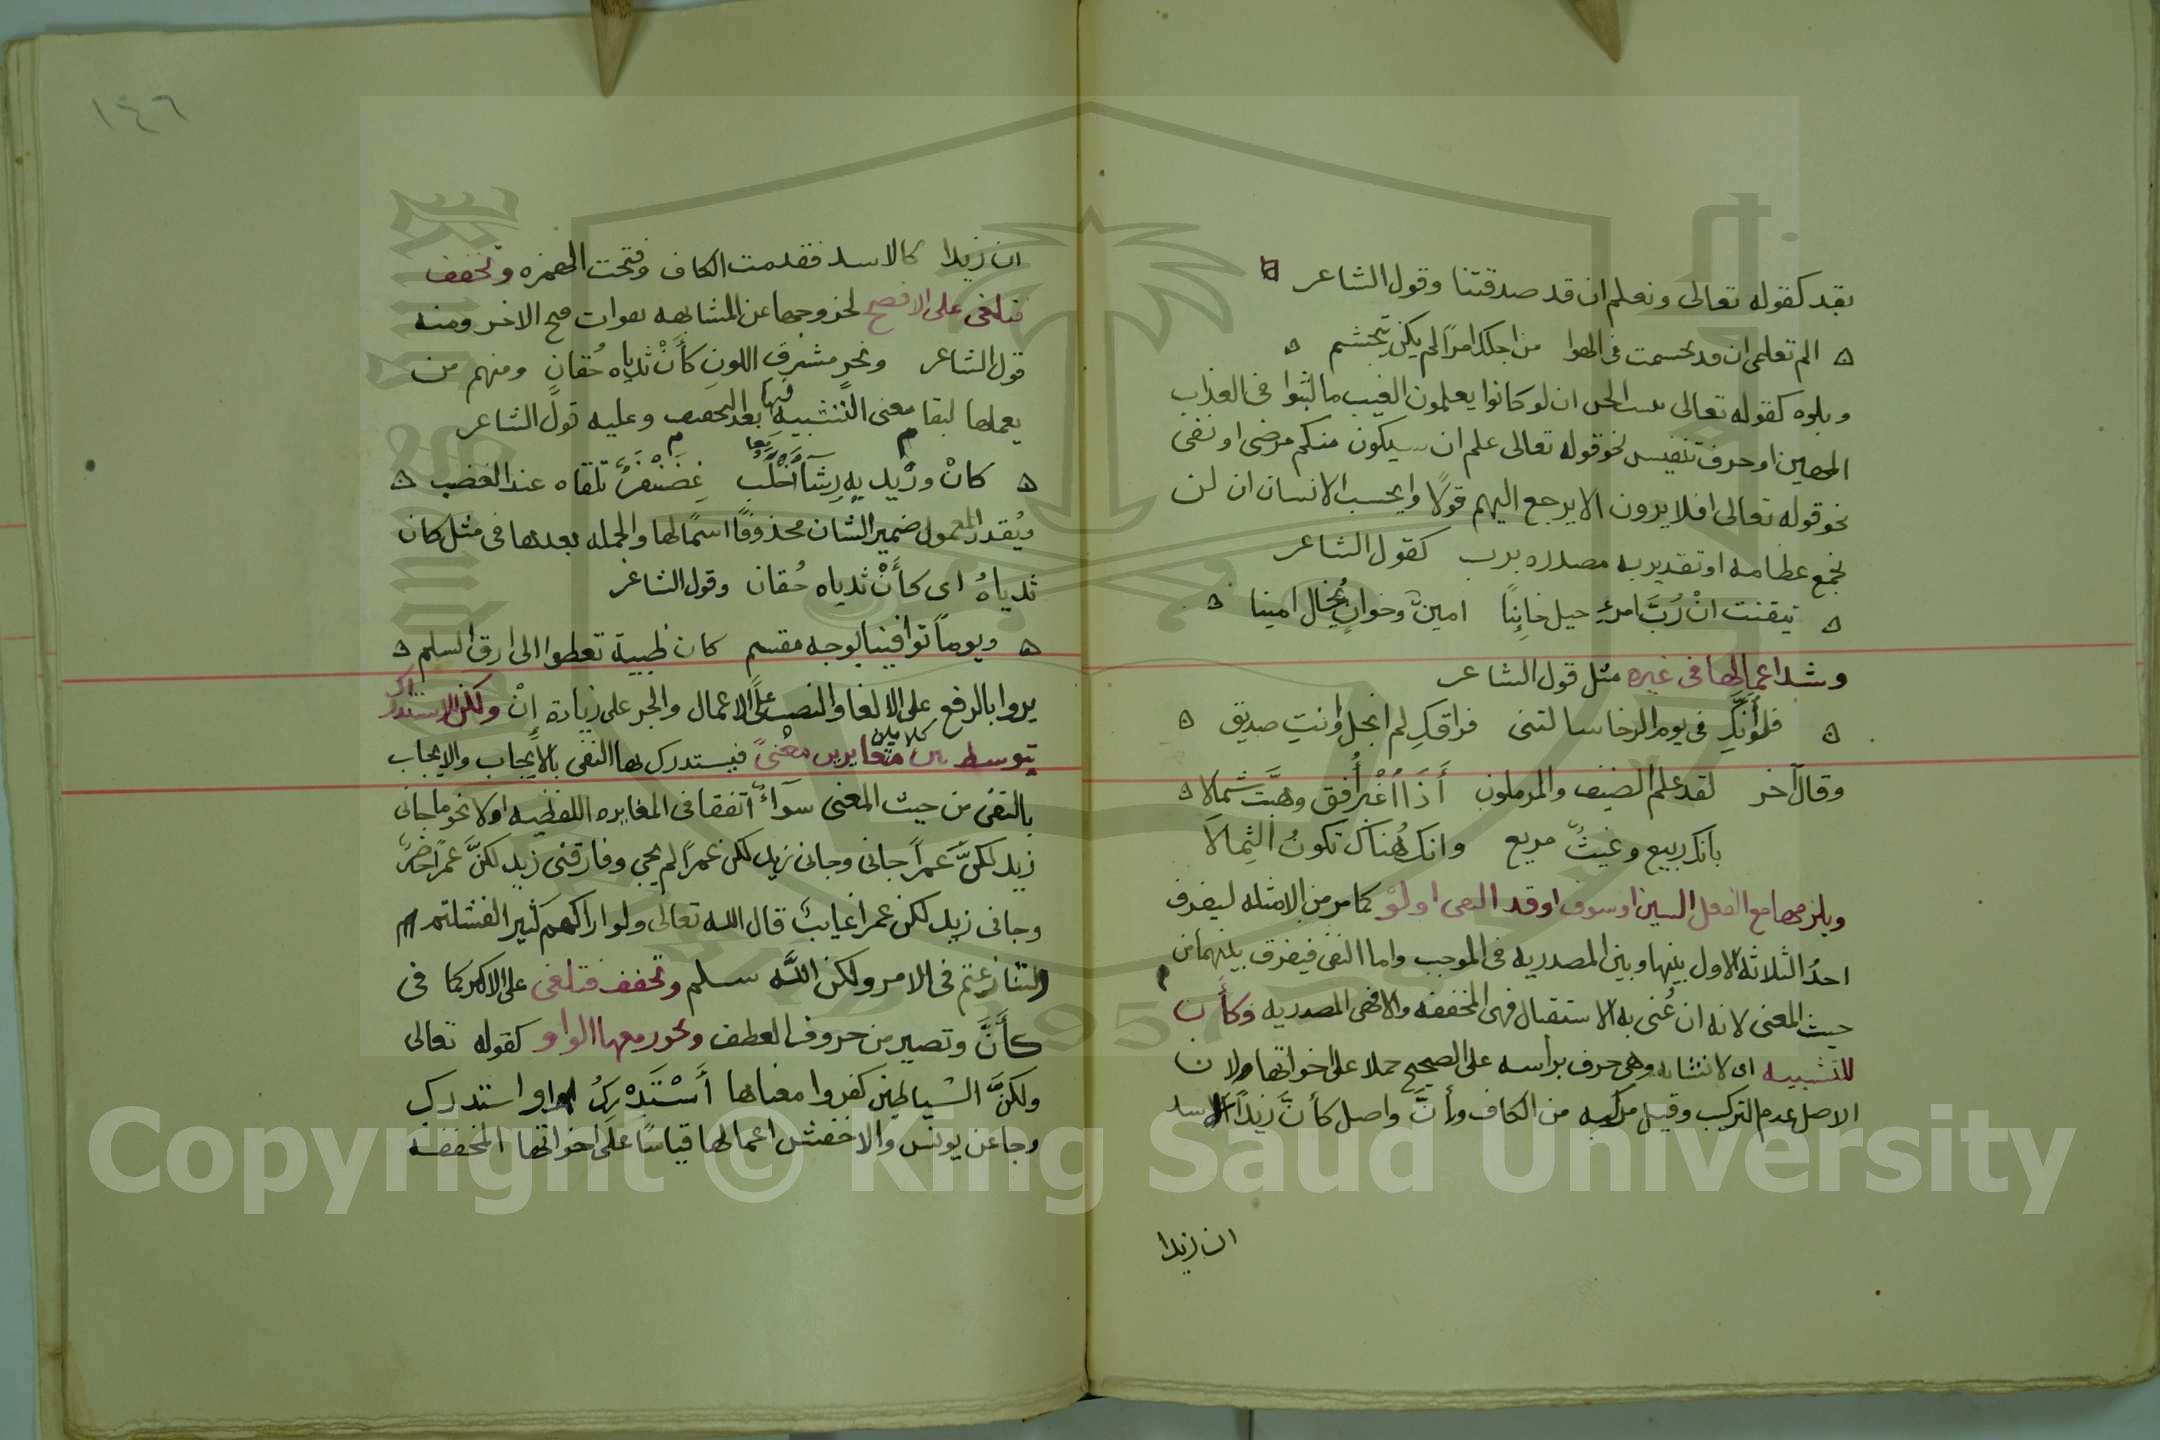 بقد كقوله تعالى ونعلم ان قد صدقتنا وقول الشاعر
الم تعلمى ان قد تجشمت فى الهوا من اجلك امرًا لم يكن يتجشم
وبلوه كقوله تعالى الجن ان لو كانوا يعلمون الغيب ما لبثوا فى العذاب
المهين او حرف تنفيس نحو قوله تعالى علم ان سيكون منكم مرضى او نفى
نحو قوله تعالى افلا يرون الا يرجع اليهم قولًا وايحسب الانسان ان لن
نجمع عظامه او تقدير به مصدره برب كقول الشاعر
تيقنت انْ رُبَّ امرئ خيل خائِنًا امينٌ وخوانٍ يُخال امينا
وشد اعمالها فى غيره مثل قول الشاعر
فلو أنكِ فى يوم الرخا سالتنى فراقكِ لم ابخل وانتِ صديق
وقال آخر لقد علم الضيف والمرملون أَذَا اغْبَر أُفق وهبَّت شمالا
بانك ربيع وغيثٌ مريع وانك هُناك تكونُ الثِمالَا
ويلزمها مع الفعل السين او سوف او قد او لوْ كما مر من الامثله ليفرف
احدُ الثلاثه الاول بينها وبين المصدريه فى الموجب واما النفى فيفرق بينهما من
حيث المعنى لانه ان عُنى به الاستقبال فهى المخففه والا فهى المصدريه وكأن
للتشبيه اى لانشائه وهى حرف براسه على الصحيح حملا على اخواتها ولان
الاصل عدم التركيب وقيل مركبه من الكاف وأنَّ واصل كأنَّ زيدًا الاسد
ان زيدا
١٤٦
ان زيدا كالاسد فقدمت الكاف وفتحت الهمزه وتخفف
فتلغى على الافصح لخروجها عن المشابهه بفوات فتح الاخر ومنه
قول الشاعر ونحرٍ مشرقِ اللون كأَنْ ثدياه حُقانِ ومنهم من
يعملها لبقا معنى التشبيه فيها بعد التخفيف وعليه قول الشاعر
كانْ وريديه رِشآ خُلْب غضنفرٌ تلقاه عند الغضب
ويُقدر المعمول ضمير الشان محذوفًا اسمًا لها والجمله بعدها فى مثل كان
ثدياهُ اى كأَنْ ثدياه حُقان وقول الشاعر
ويومًا توافينا بوجه مقسم كان ظبية تعطوا الى ارق السلم
يروا بالرفع على الالغا والنصب على الاعمال والجر على زيادة إنْ ولكن للاستدراك
يتوسط بين كلامين متغايرين معنىً فيستدرك بها النفى بالأيجاب والايجاب
بالنفى من حيث المعنى سوآءٌ اتفقا فى المغايره اللفظيه او لا نحو ما جانى
زيد لكنَّ عمرًا جانى وجانى زيد لكن عمرًا لم يجى وفارقنى زيد لكنَّ عمرًا حضر
وجانى زيد لكن عمرا غايب قال الله تعالى ولو اراكهم كثير الفشلتم
ولتنازعتم فى الامر ولكن الله سلم وتخفف فتلغى على الاكثر كما فى
كأَنَّ وتصير من حروف العطف وتجوز معها الواو كقوله تعالى
ولكنَّ الشياطين كفروا معناها أَسْتَدْرِكُ او استدرك
وجا عن يونس والاخفش اعمالها قياسًا على اخواتها المخففه
Copyright © King Saud University
1957